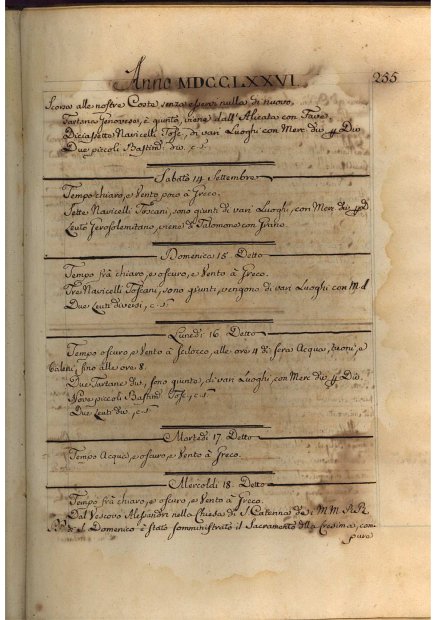 Anno MDCCLXXVI. 255
Scorsa alle nostre Coste senza esservi nulla di nuovo.
Tartana Genovese, è giunta, viene dall'Alicata con Fave.
Diciasette Navicelli Tosc. di vari Luoghi con Merc. div. Div
Due piccoli Bastim. div. c. s.
Sabato 14 Settembre
Tempo chiaro, e Vento poco à Greco.
Sette Navicelli Toscani, sono giunti di vari Luoghi, con Merc. div.
Leuto Gerosolimitano, viene di Talamone con Grano.
Domenica 15 Detto
Tempo frà chiaro, e oscuro, e Vento à Greco.
Tre Navicelli Toscani, sono giunti, vengono di vari Luoghi con M. d
Due Leuti diversi, c. s.
Lunedì 16 Detto
Tempo oscuro, e Vento à Scilocco, alle ore 4 di sera Acqua, tuoni, e
baleni, fino alle ore 8.
Due Tartane div. sono giunte, di vari Luoghi con Merc. div. Div.
Nove piccoli Bastim. Tosc. c. s.
Due Leuti div. c. s.
Martedì 17 Detto
Tempo Acqua, e oscuro, e Vento à Greco.
Mercoldì 18 Detto
Tempo frà chiaro, e oscuro, e Vento à Greco.
Dal Vescovo Alessandri nella Chiesa di S. Caterina de MM. RR.
PP. di S. Domenico è stato somministrato il Sacramento della Cresima, com-
pare